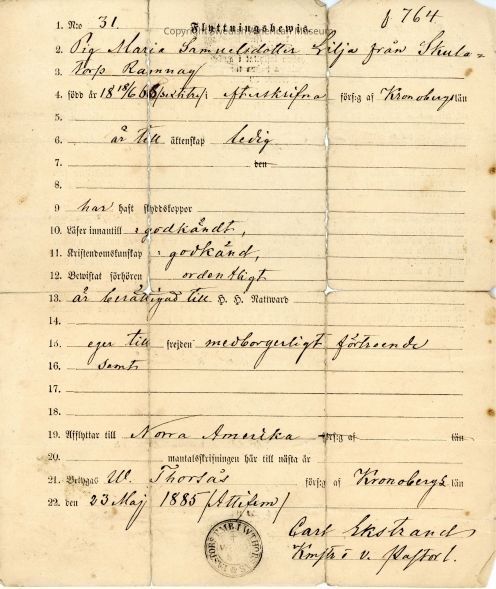 1. N:o 31. Flyttningsbewis. f 764.
Copyright Swedish American Museum
2. Pig Maria Samuelsdotter Lilja från Skula=
3. torp Ramnas
4. född år 18 18/6 68 /sextiåtta/; Afterskrifna förs:g af Kronobergs län
5.
6. är till äktenskap ledig
7. den
8.
9 har haft skyddskoppor
10. Läser innantill : godkändt,
11. Kristendomskunskap : godkänd,
12. Bewistat förhören ordentligt
13. är berättigad till H. H. Nattward
15. eger till frejden medborgerligt förtroende
16. samt
17.
18.
19. Afflyttar till Norra Amerika förs:g af län
20. mantalsskrifningen här till nästa år
21. Betygas W. Thorsås förs:g af Kronobergs län
22. den 23 Maj 1885 /Åttifem/
Carl Ekstrand
Kmstr o v. Pastor l.